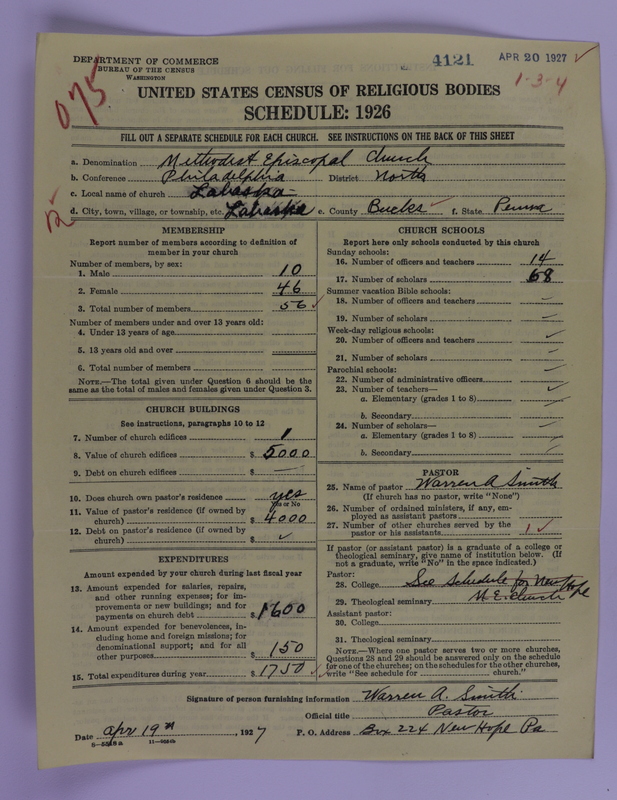 DEPARTMENT OF COMMERCE
BUREAU OF THE CENSUS
WASHINGTON
4121
APR 20 1927 ✓
1-3-4
075
UNITED STATES CENSUS OF RELIGIOUS BODIES
SCHEDULE: 1926
FILL OUT A SEPARATE SCHEDULE FOR EACH CHURCH. SEE INSTRUCTIONS ON THE BACK OF THIS SHEET
a. Denomination Methodist Episcopal Church
b. Conference Philadelphia District North
c. Local name of church Lahaska
d. City, town, village, or township, etc. Lahaska e. County Bucks f. State Penna
12
MEMBERSHIP
Report number of members according to definition of
member in your church
Number of members, by sex:
1. Male 10
2. Female 46
3. Total number of members 56 ✓
Number of members under and over 13 years old:
4. Under 13 years of age
5. 13 years old and over
6. Total number of members
NOTE.—The total given under Question 6 should be the
same as the total of males and females given under Question 3.
CHURCH BUILDINGS
See instructions, paragraphs 10 to 12
7. Number of church edifices 1
8. Value of church edifices $ 5000
9. Debt on church edifices $ —
10. Does church own pastor's residence yes
Yes or No
11. Value of pastor's residence (if owned by
church) $ 4000
12. Debt on pastor's residence (if owned by
church) $ ✓
EXPENDITURES
Amount expended by your church during last fiscal year
13. Amount expended for salaries, repairs,
and other running expenses; for im-
provements or new buildings; and for
payments on church debt $ 1600
14. Amount expended for benevolences, in-
cluding home and foreign missions; for
denominational support; and for all
other purposes $ 150
15. Total expenditures during year $ 1750 ✓
CHURCH SCHOOLS
Report here only schools conducted by this church
Sunday schools:
16. Number of officers and teachers 14
17. Number of scholars 68
Summer vacation Bible schools:
18. Number of officers and teachers —
19. Number of scholars —
Week-day religious schools:
20. Number of officers and teachers ✓
21. Number of scholars —
Parochial schools: ✓
22. Number of administrative officers
23. Number of teachers— ✓
a. Elementary (grades 1 to 8) ✓
b. Secondary
24. Number of scholars— —
a. Elementary (grades 1 to 8) ✓
b. Secondary ✓
PASTOR
25. Name of pastor Warren A Smith
(If church has no pastor, write "None")
26. Number of ordained ministers, if any, em-
ployed as assistant pastors
27. Number of other churches served by the
pastor or his assistants 1 ✓
If pastor (or assistant pastor) is a graduate of a college or
theological seminary, give name of institution below. (If
not a graduate, write "No" in the space indicated.)
Pastor:
28. College See Schedule for New Hope
29. Theological seminary M.E. Church
Assistant pastor:
30. College
31. Theological seminary
NOTE.—Where one pastor serves two or more churches,
Questions 28 and 29 should be answered only on the schedule
for one of the churches; on the schedules for the other churches,
write "See schedule for church."
Signature of person furnishing information Warren A. Smith
Official title Pastor
Date Apr 19th, 1927 P. O. Address Box 224 New Hope Pa